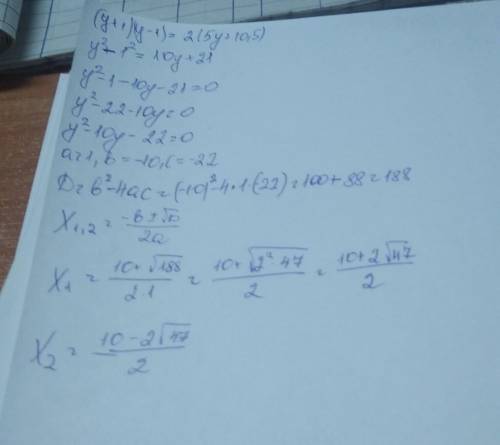 (y+1)(y-1)=2(5y+10,5)
y²-1²=10y+21
y²-1-10y-21=0
y²-22-10y=0
y²-10y-22=0
a=1, b=-10, c=-22
D=b²-4ac=(-10)²-4·1·(22)=100+88=188
X₁,₂ = (-b±√D)/2a
X₁ = (10+√188)/(2·1) = (10+√(2²·47))/2 = (10+2√47)/2
X₂ = (10-2√47)/2